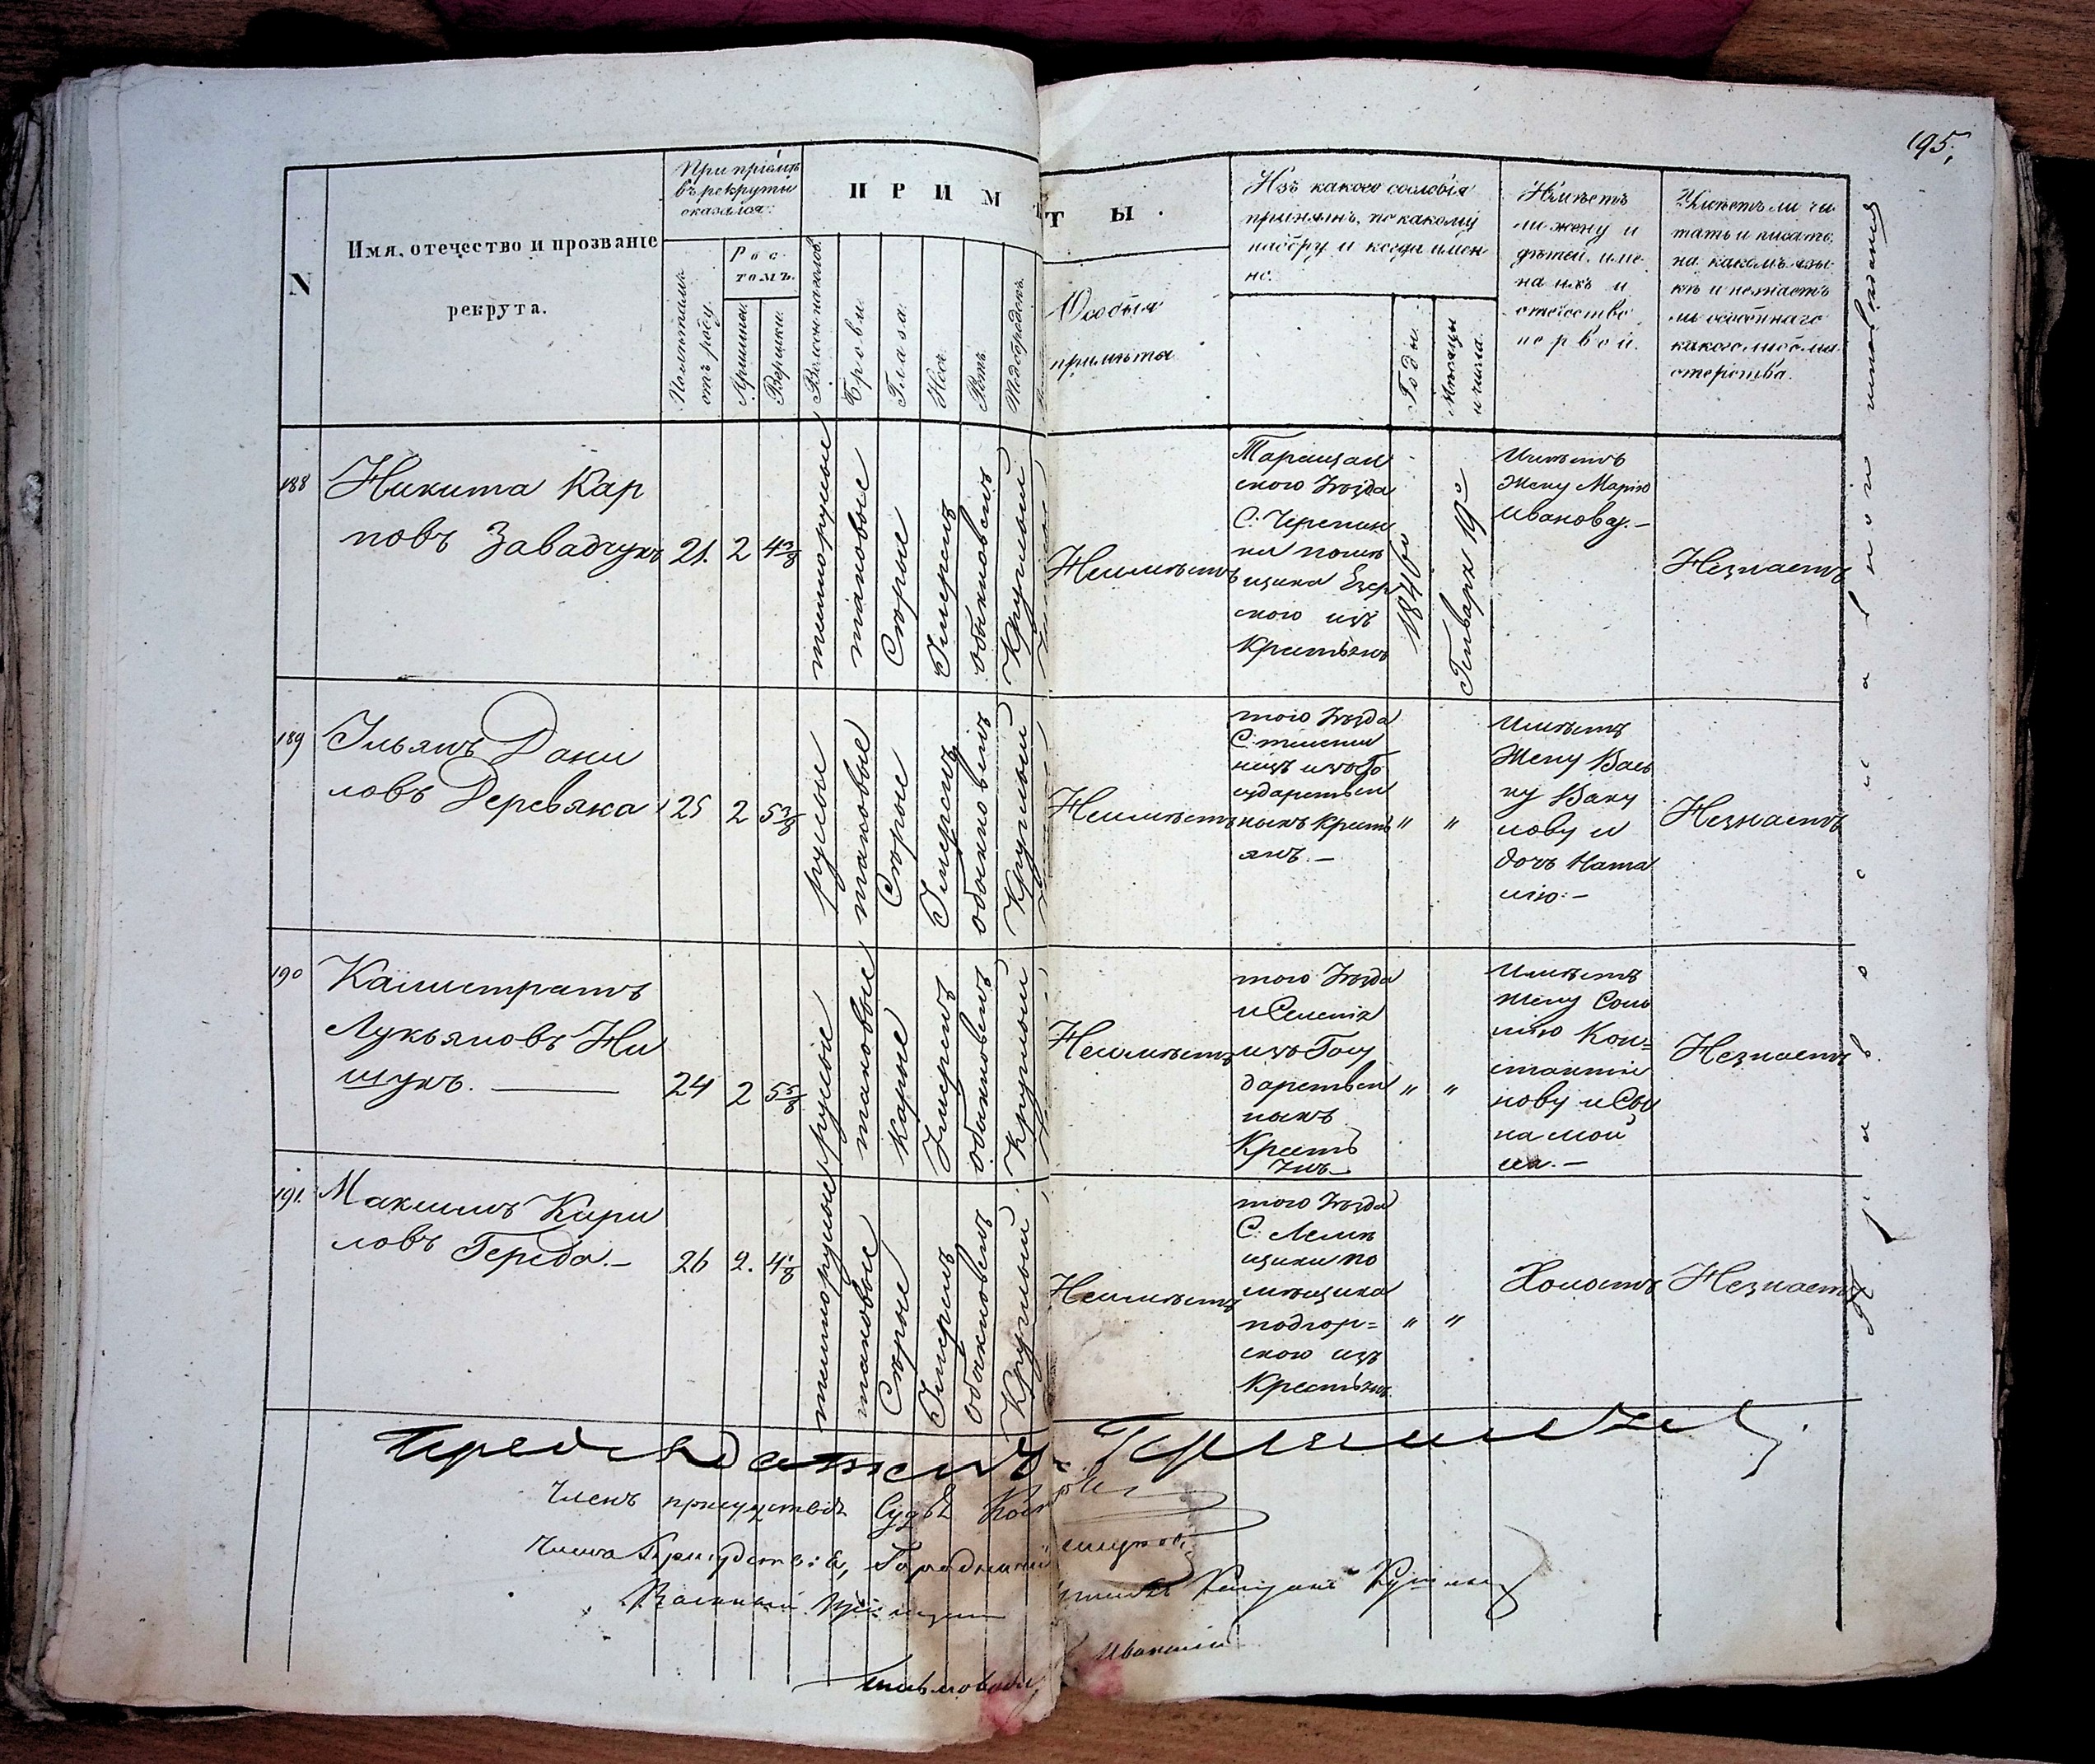 195.
N
Имя, отечество и прозваніе
рекрута.
При пріемѣ
въ рекруты
оказался:
Ростомъ.
Аршины.
Вершки.
ПРИМѢТЫ.
Волосы на головѣ
Брови.
Глаза.
Носъ
Ротъ
Подбородокъ
Особыя
примѣты
Изъ какого сословія
принятъ, по какому
набору и когда имен
но.
Годы.
Мѣсяцы
и числа.
Имѣетъ
ли жену и
дѣтей, име
на ихъ и
отечество
первой.
Умѣетъ ли чи
тать и писать,
на какомъ язы
кѣ и не знаетъ
ли особеннаго
какого либо ма
стерства.
188
Никита Кар
повъ Завадчукъ
21.
2
4 3/8
темнорусые
таковые
Сѣрые
Умѣренъ
обыкновенъ
Круглый
Неимѣетъ
Таращан
ского Уѣзда
С: Черепин
ки помѣ
щика Езер
ского изъ
Крестьянъ
1846го
Генваря 19го
Имѣетъ
Жену Марію
Иванову.—
Незнаетъ
189
Ульянъ Дани
ловъ Деревяка
25
2
5 3/8
русые
таковые
Сѣрые
Умѣренъ
обыкновенъ
Круглый
Неимѣетъ
того Уѣзда
изъ Го
сударствен
ныхъ Кресть
янъ.—
"
"
Имѣетъ
Жену
и
дочь Ната
лію.—
Незнаетъ
190
Калистратъ
Лукьяновъ Ни
щукъ.
24
2
5 5/8
русые
таковые
Карые
Умѣренъ
обыкновенъ
Круглый
Неимѣетъ
того Уѣзда
и Селенія
изъ Госу
дарствен
ныхъ
Кресть
янъ
"
"
Имѣетъ
жену Соло
мію Кон=
стантин
нову и Сы
на Мой
сея.—
Незнаетъ
191.
Максимъ Кири
ловъ Гереда.—
26
2.
4 1/8
темнорусые
таковые
Сѣрые
Умѣренъ
Обыкновенъ
Круглый
Неимѣетъ
того Уѣзда
С:
щики по
мѣщика
Подгор=
ского изъ
Крестьянъ
"
"
Холостъ
Незнаетъ
Православнаго исповѣданія
Предсѣдатель
Членъ присутствія Судья
Членъ присутствія, Городничій
Военный пріемщикъ